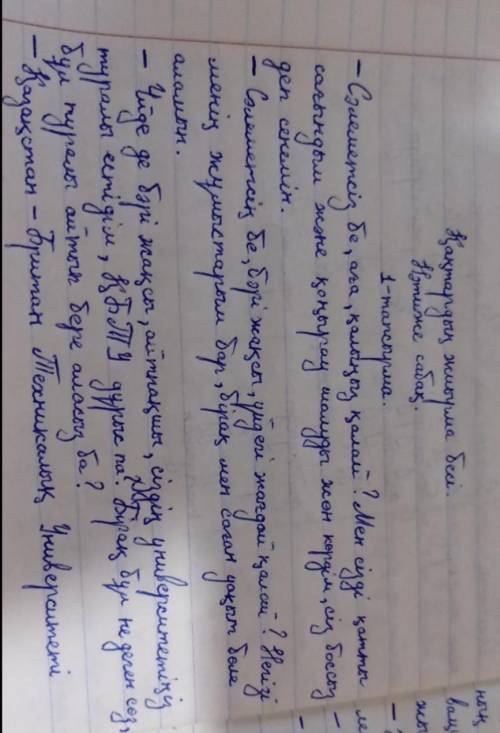 Қаңтардың жиырма бесі.
Нәтиже сабақ.
1-тапсырма.
– Сәлеметсіз бе, аға, қалыңыз қалай? Мен сізді қатты
сағындым және қоңырау шалуды жөн көрдім, сіз боссыз
деп сенемін.
– Сәлеметсің бе, бәрі жақсы, үйдегі жағдай қалай? Негізі
менің жұмыстарым бар, бірақ мен саған уақыт бөле
аламын.
– Үйде де бәрі жақсы, айтпақшы, сіздің университетіңіз
туралы естідім, ҚБТУ дұрыс па. Бірақ бұл не деген сөз,
бұл туралы айтып бере аласыз ба?
– Қазақстан – Британ Техникалық Университеті
ның
жы